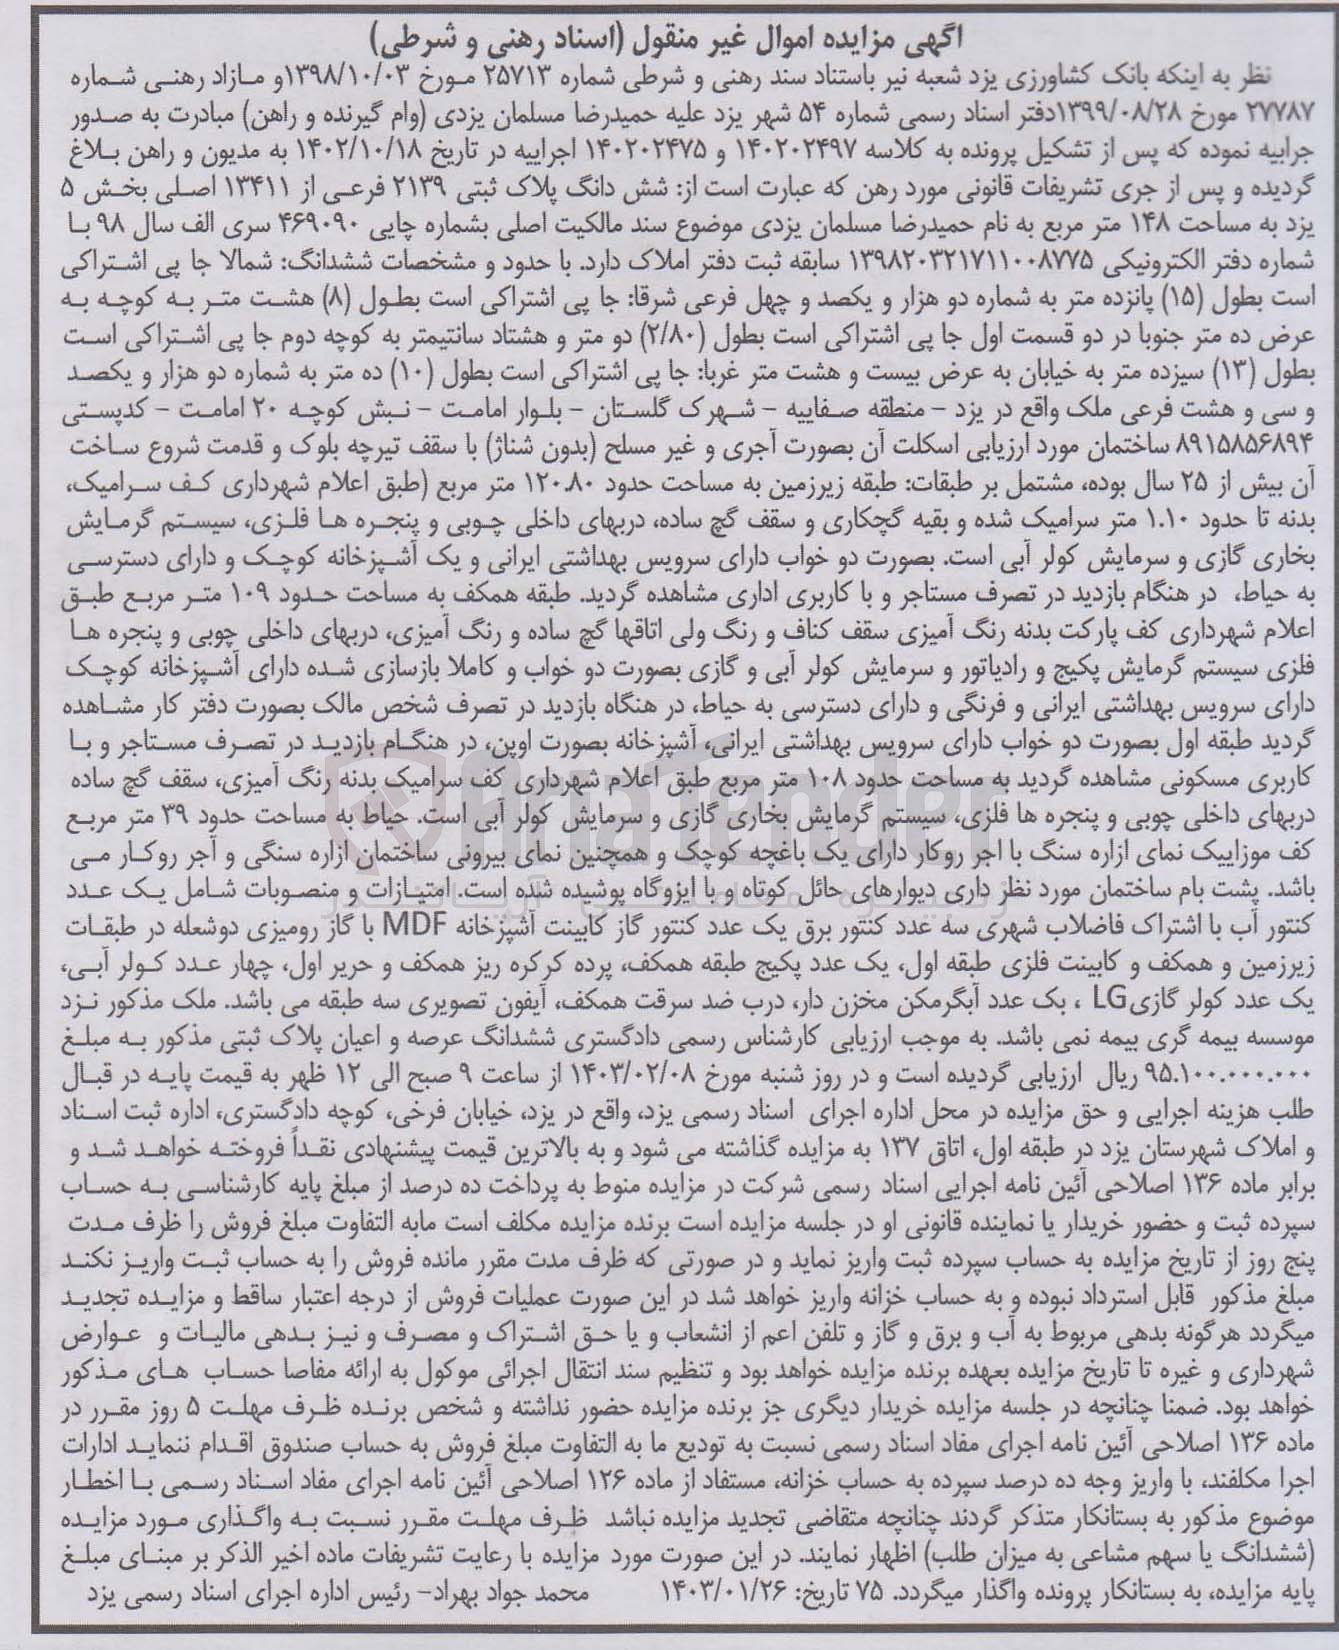 آگهی مزایده اموال غیر منقول (اسناد رهنی و شرطی)
نظر به اینکه بانک کشاورزی یزد شعبه نیر باستناد سند رهنی و شرطی شماره ۲۵۷۱۳ مورخ ۱۳۹۸/۱۰/۰۳و مازاد رهنی شماره
۲۷۷۸۷ مورخ ۱۳۹۹/۰۸/۲۸دفتر اسناد رسمی شماره ۵۴ شهر یزد علیه حمیدرضا مسلمان یزدی (وام گیرنده و راهن) مبادرت به صدور
جراییه نموده که پس از تشکیل پرونده به کلاسه ۱۴۰۲۰۲۴۹۷ و ۱۴۰۲۰۲۴۷۵ اجراییه در تاریخ ۱۴۰۲/۱۰/۱۸ به مدیون و راهن بلاغ
گردیده و پس از جری تشریفات قانونی مورد رهن که عبارت است از: شش دانگ پلاک ثبتی ۲۱۳۹ فرعی از ۱۳۴۱۱ اصلی بخش ۵
یزد به مساحت ۱۴۸ متر مربع به نام حمیدرضا مسلمان یزدی موضوع سند مالکیت اصلی بشماره چاپی ۴۶۹۰۹۰ سری الف سال ۹۸ با
شماره دفتر الکترونیکی ۱۳۹۸۲۰۳۲۱۷۱۱۰۰۸۷۷۵ سابقه ثبت دفتر املاک دارد. با حدود و مشخصات ششدانگ: شمالا جا پی اشتراکی
است بطول (۱۵) پانزده متر به شماره دو هزار و یکصد و چهل فرعی شرقا: جا پی اشتراکی است بطول (۸) هشت متر به کوچه به
عرض ده متر جنوبا در دو قسمت اول جا پی اشتراکی است بطول (۲/۸۰) دو متر و هشتاد سانتیمتر به کوچه دوم جا پی اشتراکی است
بطول (۱۳) سیزده متر به خیابان به عرض بیست و هشت متر غربا: جا پی اشتراکی است بطول (۱۰) ده متر به شماره دو هزار و یکصد
و سی و هشت فرعی ملک واقع در یزد – منطقه صفاییه – شهرک گلستان – بلوار امامت – نبش کوچه ۲۰ امامت – کدپستی
۸۹۱۵۸۵۶۸۹۴ ساختمان مورد ارزیابی اسکلت آن بصورت آجری و غیر مسلح (بدون شناژ) با سقف تیرچه بلوک و قدمت شروع ساخت
آن بیش از ۲۵ سال بوده، مشتمل بر طبقات: طبقه زیرزمین به مساحت حدود ۱۲۰.۸۰ متر مربع (طبق اعلام شهرداری کف سرامیک،
بدنه تا حدود ۱.۱۰ متر سرامیک شده و بقیه گچکاری و سقف گچ ساده، دربهای داخلی چوبی و پنجره ها فلزی، سیستم گرمایش
بخاری گازی و سرمایش کولر آبی است. بصورت دو خواب دارای سرویس بهداشتی ایرانی و یک آشپزخانه کوچک و دارای دسترسی
به حیاط، در هنگام بازدید در تصرف مستاجر و با کاربری اداری مشاهده گردید. طبقه همکف به مساحت حدود ۱۰۹ متر مربع طبق
اعلام شهرداری کف پارکت بدنه رنگ آمیزی سقف کناف و رنگ ولی اتاقها گچ ساده و رنگ آمیزی، دربهای داخلی چوبی و پنجره ها
فلزی سیستم گرمایش پکیج و رادیاتور و سرمایش کولر آبی و گازی بصورت دو خواب و کاملا بازسازی شده دارای آشپزخانه کوچک
دارای سرویس بهداشتی ایرانی و فرنگی و دارای دسترسی به حیاط، در هنگاه بازدید در تصرف شخص مالک بصورت دفتر کار مشاهده
گردید طبقه اول بصورت دو خواب دارای سرویس بهداشتی ایرانی، آشپزخانه بصورت اوپن، در هنگام بازدید در تصرف مستاجر و با
کاربری مسکونی مشاهده گردید به مساحت حدود ۱۰۸ متر مربع طبق اعلام شهرداری کف سرامیک بدنه رنگ آمیزی، سقف گچ ساده
دربهای داخلی چوبی و پنجره ها فلزی، سیستم گرمایش بخاری گازی و سرمایش کولر آبی است. حیاط به مساحت حدود ۳۹ متر مربع
کف موزاییک نمای ازاره سنگ با اجر روکار دارای یک باغچه کوچک و همچنین نمای بیرونی ساختمان ازاره سنگی و آجر روکار می
باشد. پشت بام ساختمان مورد نظر داری دیوارهای حائل کوتاه و با ایزوگاه پوشیده شده است. امتیازات و منصوبات شامل یک عدد
کنتور آب با اشتراک فاضلاب شهری سه عدد کنتور برق یک عدد کنتور گاز کابینت آشپزخانه MDF با گاز رومیزی دوشعله در طبقات
زیرزمین و همکف و کابینت فلزی طبقه اول، یک عدد پکیج طبقه همکف، پرده کرکره ریز همکف و حریر اول، چهار عدد کولر آبی،
یک عدد کولر گازیLG ، بک عدد آبگرمکن مخزن دار، درب ضد سرقت همکف، آیفون تصویری سه طبقه می باشد. ملک مذکور نزد
موسسه بیمه گری بیمه نمی باشد. به موجب ارزیابی کارشناس رسمی دادگستری ششدانگ عرصه و اعیان پلاک ثبتی مذکور به مبلغ
۹۵.۱۰۰.۰۰۰.۰۰۰ ریال ارزیابی گردیده است و در روز شنبه مورخ ۱۴۰۳/۰۲/۰۸ از ساعت ۹ صبح الی ۱۲ ظهر به قیمت پایه در قبال
طلب هزینه اجرایی و حق مزایده در محل اداره اجرای اسناد رسمی یزد، واقع در یزد، خیابان فرخی، کوچه دادگستری، اداره ثبت اسناد
و املاک شهرستان یزد در طبقه اول، اتاق ۱۳۷ به مزایده گذاشته می شود و به بالاترین قیمت پیشنهادی نقداً فروخته خواهد شد و
برابر ماده ۱۳۶ اصلاحی آئین نامه اجرایی اسناد رسمی شرکت در مزایده منوط به پرداخت ده درصد از مبلغ پایه کارشناسی به حساب
سپرده ثبت و حضور خریدار یا نماینده قانونی او در جلسه مزایده است برنده مزایده مکلف است مابه التفاوت مبلغ فروش را ظرف مدت
پنج روز از تاریخ مزایده به حساب سپرده ثبت واریز نماید و در صورتی که ظرف مدت مقرر مانده فروش را به حساب ثبت واریز نکند
مبلغ مذکور قابل استرداد نبوده و به حساب خزانه واریز خواهد شد در این صورت عملیات فروش از درجه اعتبار ساقط و مزایده تجدید
میگردد هرگونه بدهی مربوط به آب و برق و گاز و تلفن اعم از انشعاب و یا حق اشتراک و مصرف و نیز بدهی مالیات و عوارض
شهرداری و غیره تا تاریخ مزایده بعهده برنده مزایده خواهد بود و تنظیم سند انتقال اجرائی موکول به ارائه مفاصا حساب های مذکور
خواهد بود. ضمنا چنانچه در جلسه مزایده خریدار دیگری جز برنده مزایده حضور نداشته و شخص برنده ظرف مهلت ۵ روز مقرر در
ماده ۱۳۶ اصلاحی آئین نامه اجرای مفاد اسناد رسمی نسبت به تودیع ما به التفاوت مبلغ فروش به حساب صندوق اقدام ننماید ادارات
اجرا مکلفند، با واریز وجه ده درصد سپرده به حساب خزانه، مستفاد از ماده ۱۲۶ اصلاحی آئین نامه اجرای مفاد اسناد رسمی با اخطار
موضوع مذکور به بستانکار متذکر گردند چنانچه متقاضی تجدید مزایده نباشد ظرف مهلت مقرر نسبت به واگذاری مورد مزایده
(ششدانگ یا سهم مشاعی به میزان طلب) اظهار نمایند. در این صورت مورد مزایده با رعایت تشریفات ماده اخیر الذکر بر مبنای مبلغ
پایه مزایده، به بستانکار پرونده واگذار میگردد. ۷۵ تاریخ: ۱۴۰۳/۰۱/۲۶ محمد جواد بهراد– رئیس اداره اجرای اسناد رسمی یزد